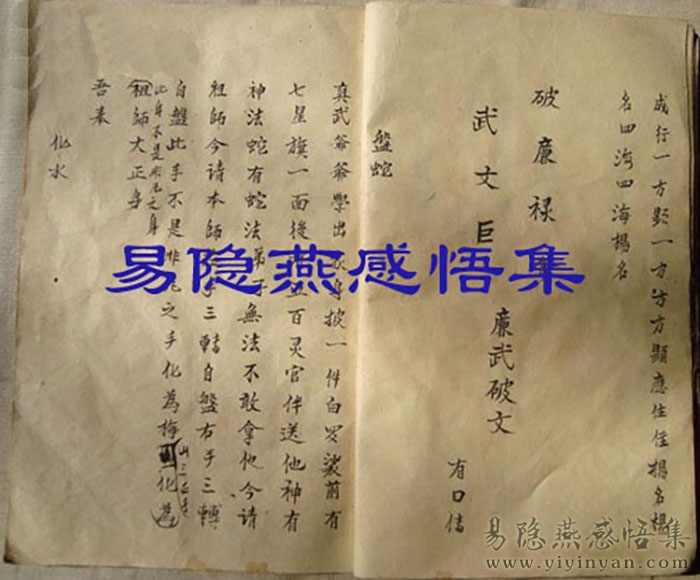 成行一方影一方方顯應住住揚名揚
名四海四海揚名
破廉禄
武文巨
廉武破文
有口傳
盤蛇
真武爺爺學出身披一件白罗裟前有
七星旗一面後五百灵官伴送他神有
神法蛇有蛇法弟子無法不敢拿他今請
祖師今請本師手三轉自盤右手三轉
自盤此手不是非凡之手化為梅山三化為
此身不是非凡之身
祖師大正身
吾奉
化水
易隐燕感悟集
易隐燕感悟集
www.yiyinyan.com